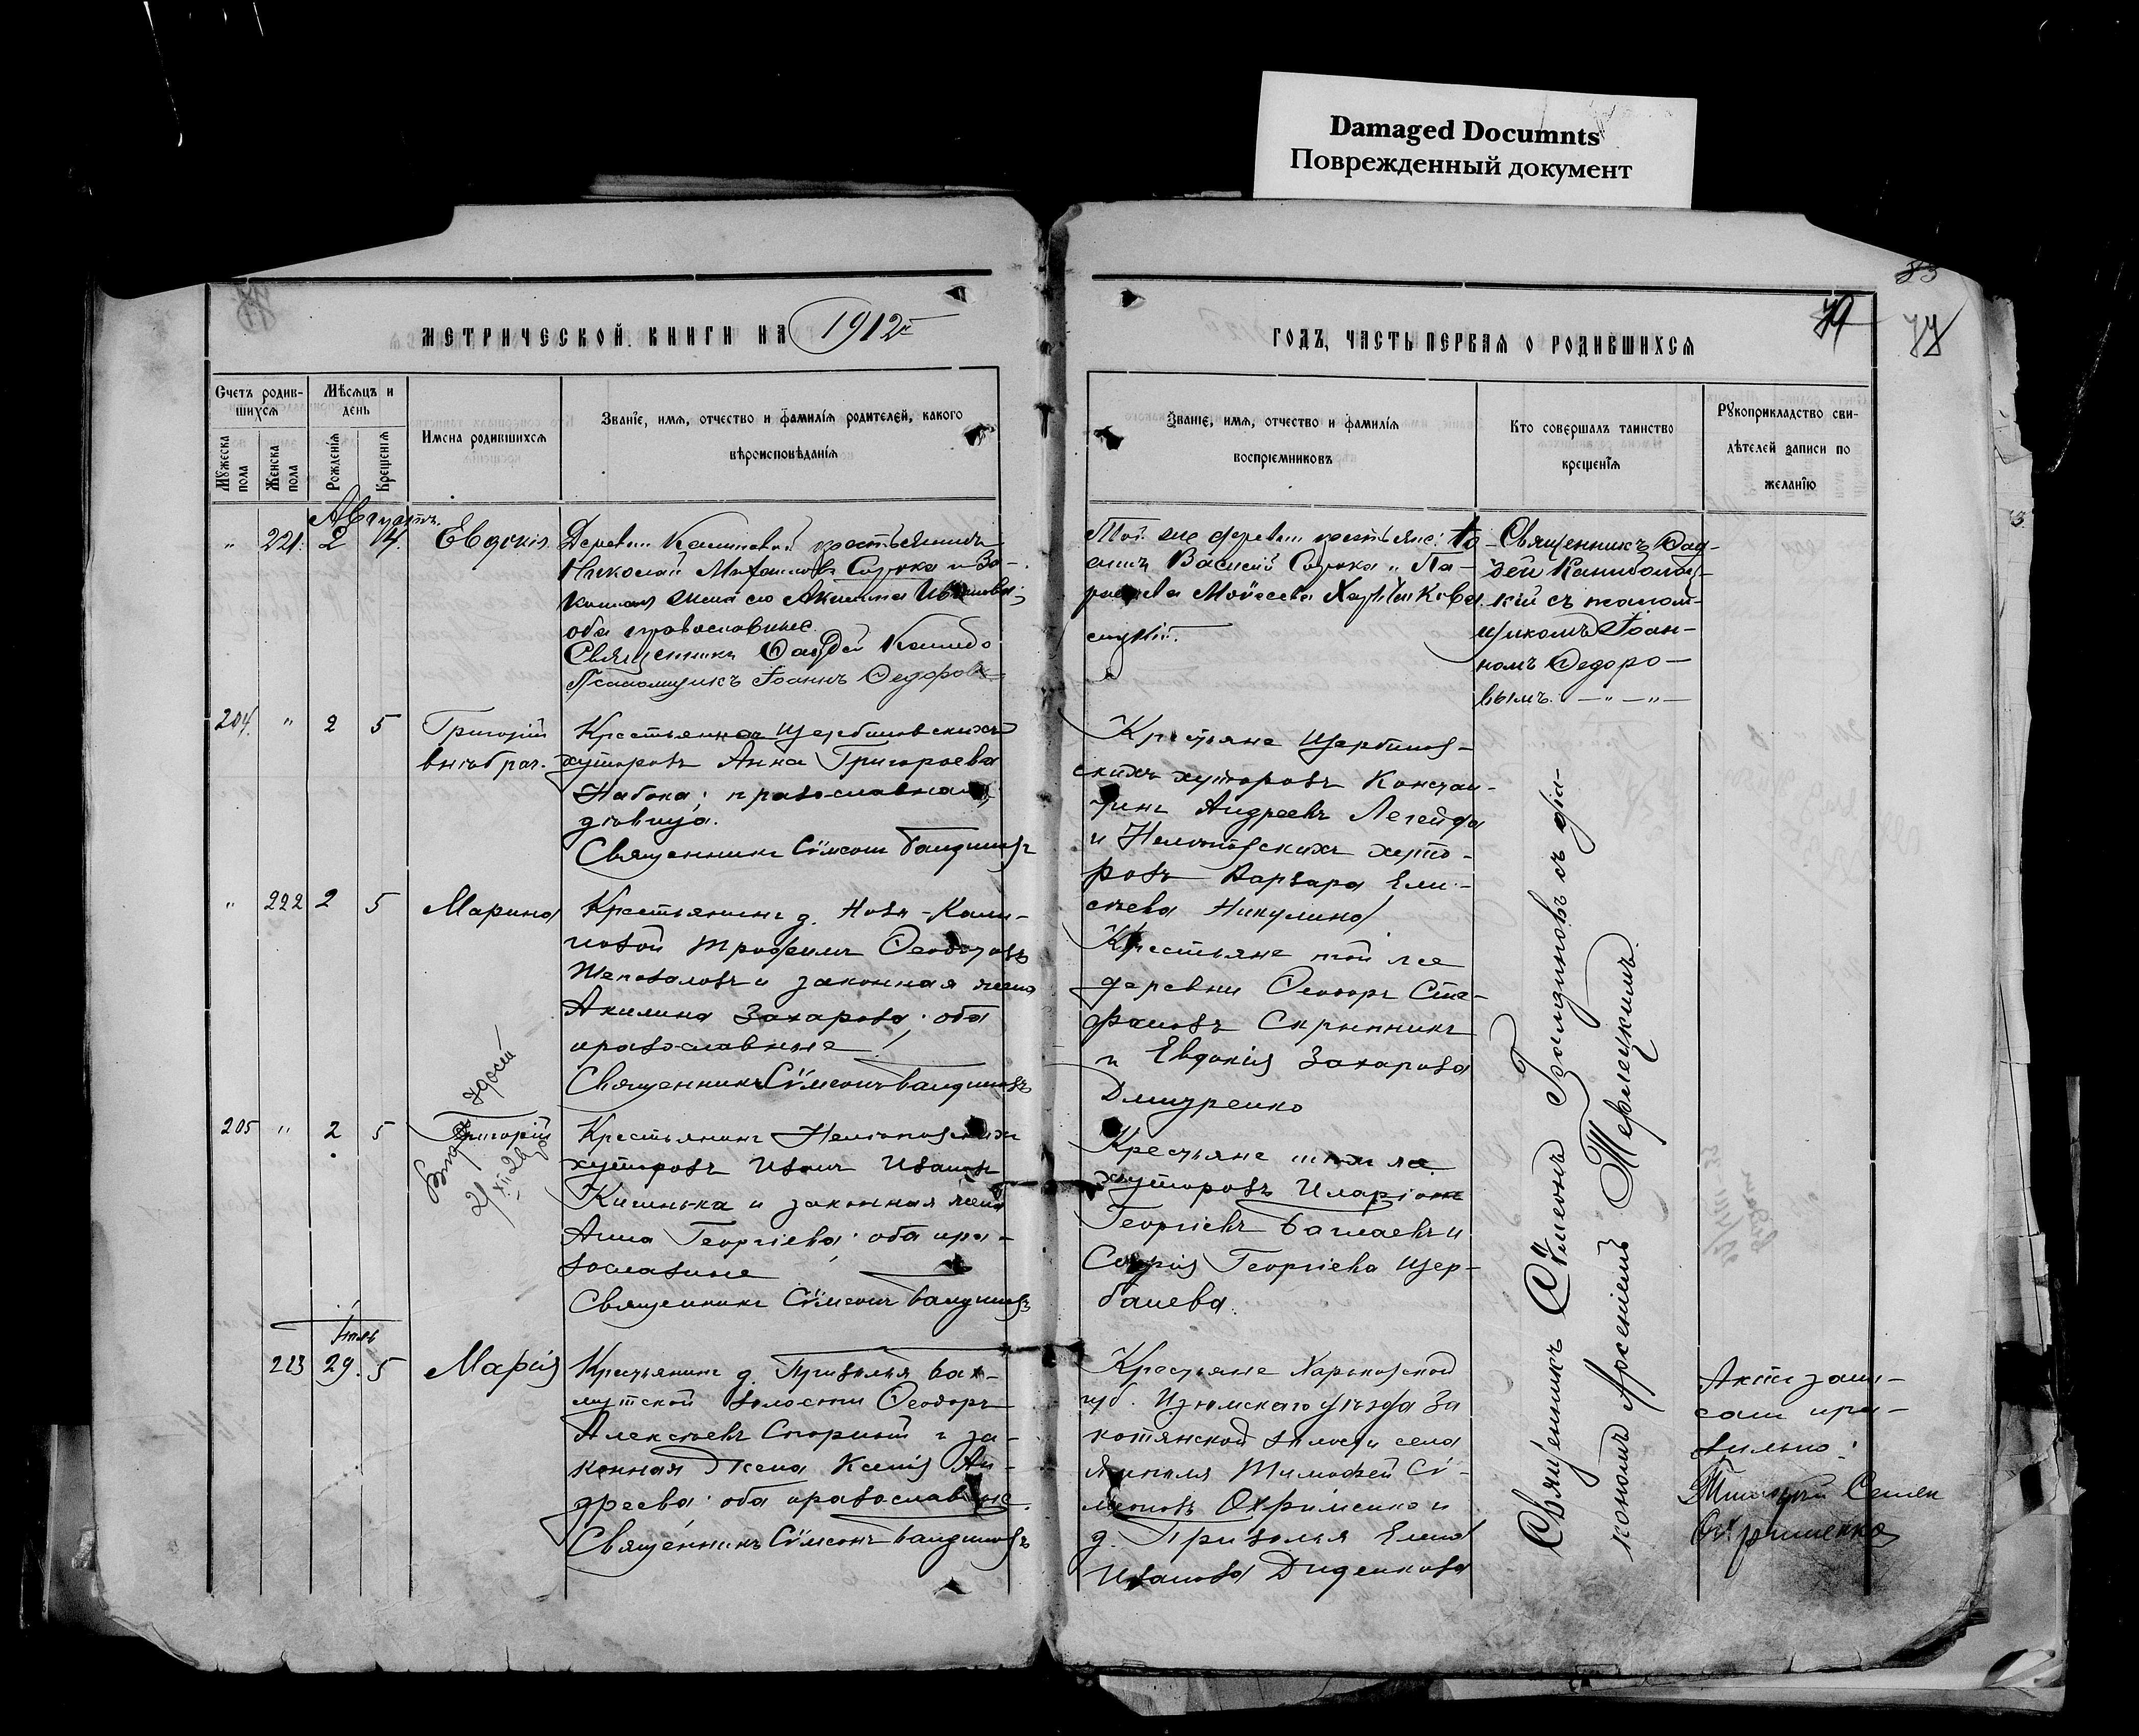 Damaged Documnts
Поврежденный документ
83
79
77
МЕТРИЧЕСКОЙ КНИГИ НА 1912 г
ГОДЪ, ЧАСТЬ ПЕРВАЯ О РОДИВШИХСЯ
Счетъ родив-
шихся
Мужеска пола
Женска пола
Мѣсяцъ и
день
Рожденія
Крещенія
Имена родившихся
Званіе, имя, отчество и фамилія родителей, какого
вѣроисповѣданія
Званіе, имя, отчество и фамилія
воспріемниковъ
Кто совершалъ таинство
крещенія
Рукоприкладство сви-
дѣтелей записи по
желанію
Августъ.
" 221. 2 4. Евдокія
Деревни Калиновой крестьянинъ
Николай Михаиловъ Сорока и За-
конная жена его Акилина Ивановна
оба православные
Священникъ Фаддей
Псаломщикъ Іоаннъ Федоровъ
Той же деревни крестьяне:
Василій Сорока и Па-
Моѵсеева
Священникъ Фад-
дей
кій съ псалом-
щикомъ Іоан-
номъ Федоро-
вымъ. — " — " —
204. " 2 5 Григорій
внѣбрач.
Крестьянка Щербиновскихъ
хуторовъ Анна Григорьева
Набока; православная,
дѣвица.
Священникъ Сѵмеонъ Балдиновъ
Крестьяне Щербинов-
скихъ хуторовъ Констан-
тинъ Андреевъ Легейда
и Нелѣповскихъ хуто-
ровъ Варвара Ели-
сѣева Никулина
" 222 2 5 Марина
Крестьянинъ д. Ново-Кали-
новой Трофимъ Феодоровъ
Шеповаловъ и законная жена
Акилина Захарова; оба
православные
Священникъ Сѵмеонъ Балдиновъ
Крестьяне той же
деревни Феодоръ Сте-
фановъ Скрыпникъ
и Евдокія Захарова
Дмитренко
205 " 2 5 Григорій
21 XII 29
Крестьянинъ Нелѣповскихъ
хуторовъ Иванъ Ивановъ
Кисинька и законная жена
Анна Георгіева; оба пра-
вославные
Священникъ Сѵмеонъ Балдиновъ
Крестьяне тѣхъ же
хуторовъ Иларіонъ
Георгіевъ Баглаевъ и
Софія Георгіева Щер-
бачева.
Іюль
223 29. 5 Марія
Крестьянинъ д. Приволья Бах-
мутской волости Феодоръ
Алексѣевъ Спорный и за-
конная жена Ксенія Ан-
дреева; оба православные.
Священникъ Сѵмеонъ Балдиновъ
Крестьяне Харьковской
губ. Изюмскаго уѣзда За
котянской волости села
Ямполя Тимофей Сѵ-
меоновъ Охрименко и
д. Приволья Елена
Иванова Диденкова
Священникъ Сѵмеонъ Балдиновъ съ діа-
кономъ Арсеніемъ Терлецкимъ.
Актъ запи-
санъ пра-
вильно:
Охрименко